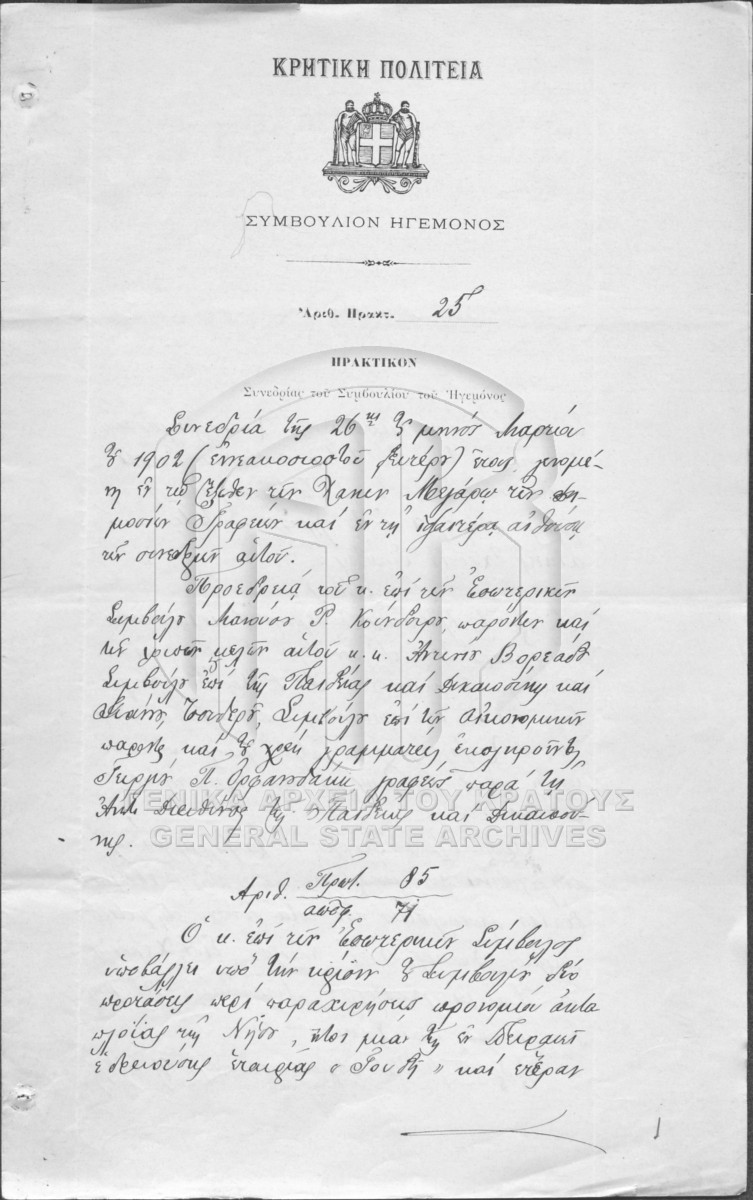 ΚΡΗΤΙΚΗ ΠΟΛΙΤΕΙΑ
ΣΥΜΒΟΥΛΙΟΝ ΗΓΕΜΟΝΟΣ
Ἀριθ. Πρακτ. 25
ΠΡΑΚΤΙΚΟΝ
Συνεδρίας τοῦ Συμβουλίου τοῦ Ἡγεμόνος
Συνεδρία τῆς 26ης τοῦ μηνός Μαρτίου
τοῦ 1902 (ἐννεακοσιοστοῦ δευτέρου) ἔτους γενομέ-
νη ἐν τῷ ἔξωθεν τῶν Χανίων Μεγάρῳ τῶν Δη-
μοσίων Γραφείων καί ἐν τῇ ἰδιαιτέρᾳ αἰθούσῃ
τῶν συνεδριῶν αὐτοῦ.
Προεδρείᾳ τοῦ κ. ἐπί τῶν Ἐσωτερικῶν
Συμβούλου Μανούσου Ρ. Κούνδουρου, παρόντων καί
τῶν λοιπῶν μελῶν αὐτοῦ κ.κ. Ἀντωνίου Βορεάδου
Συμβούλου ἐπί τῆς Παιδείας καί Δικαιοσύνης καί
Ἰωάννου Τσουδεροῦ, Συμβούλου ἐπί τῶν Οἰκονομικῶν
παρόντος καί τοῦ χρέη γραμματέως ἐκπληροῦντος
Γεωργίου Π. Ὀρφανουδάκη γραφέως παρά τῇ
Ἀνωτ. Διευθύνσει τῆς Παιδείας καί Δικαιοσύ-
νης.
ΓΕΝΙΚΑ ΑΡΧΕΙΑ ΤΟΥ ΚΡΑΤΟΥΣ
GENERAL STATE ARCHIVES
Ἀριθ. Πρωτ. 85
ἀποφ. 71
Ὁ κ. ἐπί τῶν Ἐσωτερικῶν Σύμβουλος
ὑποβάλλει ὑπό τήν κρίσιν τοῦ Συμβουλίου δύο
προτάσεις περί παραχωρήσεως προνομίου ἀκτο
πλοΐας τῆς Νήσου, ἤτοι μίαν τῆς ἐν Πειραιεῖ
ἑδρευούσης ἑταιρίας " Γουδῆ " καί ἑτέραν